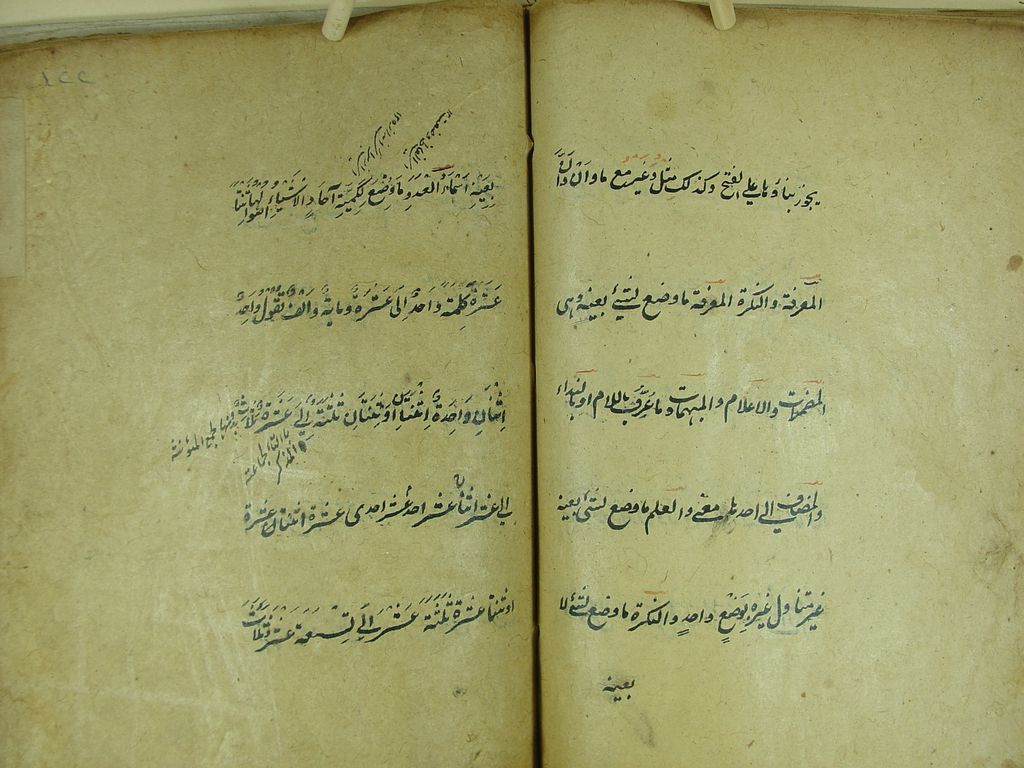 يجوز بناؤها على الفتح وكذلك مثل وغير مع ما وان وانّ
المعرفة والنكرة المعرفة ما وضع لشئ بعينه وهى
المضمرات والاعلام والمبهمات وما عرّف باللام او بالنداء
والمضاف الى احدها معنى والعلم ما وضع لشئ بعينه
غير متناول غيره بوضع واحد والنكرة ما وضع لشئ لا
بعينه
بعينه اسماء العدد ما وضع لكمية آحاد الاشياء اصولها اثنتا
عشرة كلمة واحد الى عشرة ومایة والف تقول واحد
اثنان واحدة اثنتان او ثنتان ثلثة الى عشرة ثلاث
الى عشر احد عشر اثنا عشر احدى عشرة اثنتا عشرة
او ثنتا عشرة ثلثة عشر الى تسعة عشر ثلاث